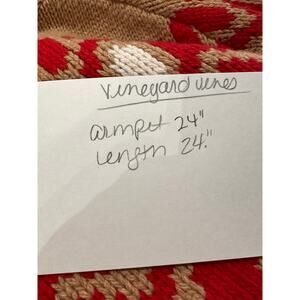 vineyard vines
armpit 24"
length 24"